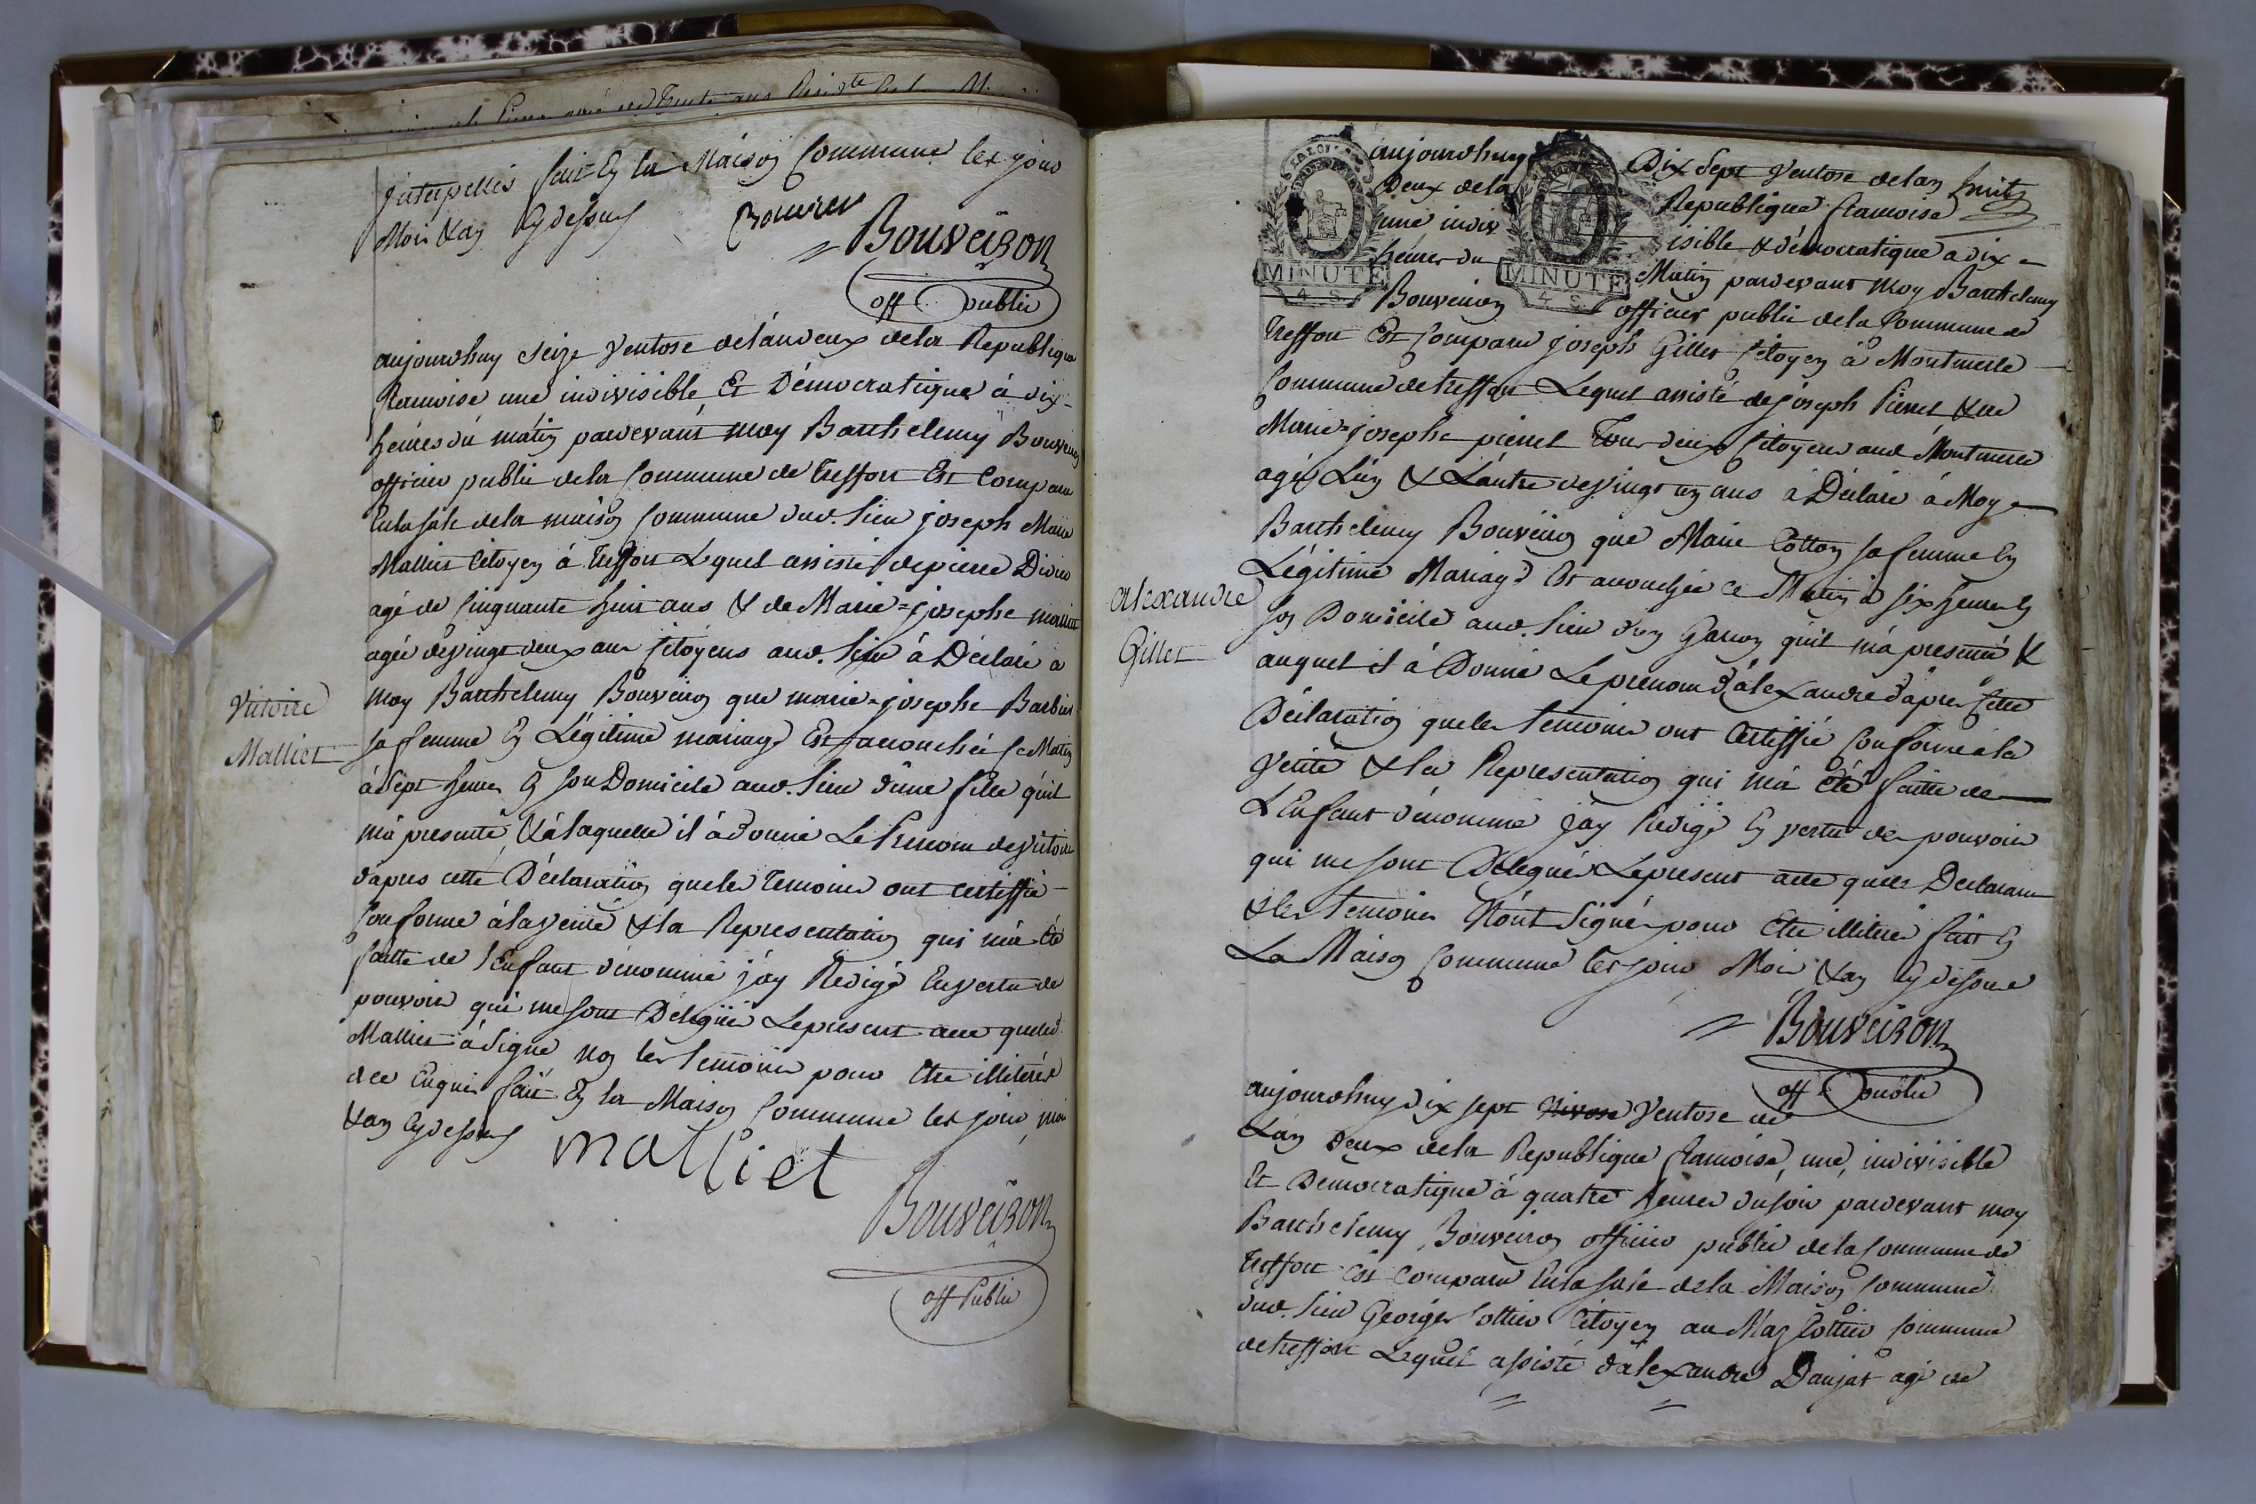 interpellés fait En la Maison Commune les jour
Mois & an Cydessus Bouvier
Bouveiron
off public
aujourdhuy seize Ventose de l'an deux de la Republique
francoise une indivisible Et Démocratique à dix
heures du matin pardevant moy Barthelemy Bouveiron
officier public de la Commune de Treffort Est Comparu
En la sale de la maison Commune dud. lieu joseph Marie
Malliet Citoyen à Treffort Lequel assisté de pierre Didier
agé de Cinquante huit ans & de Marie=josephe malliet
agée de vingt deux ans Citoyens aud. lieu à Déclaré à
moy Barthelemy Bouveiron que marie=josephe Barbier
sa femme En Légitime mariage Est accouchée ce Matin
à sept heures En son Domicile aud. lieu d'une fille qu'il
m'a presenté, & à laquelle il à donné Le Prenom de victoire
d'apres cette Déclaration que les temoins ont certiffié
Conforme à la verité & la Representation qui m'a été
faitte de l'Enfant dénommé j'ay Redigé En vertu des
pouvoirs qui me sont Délégués Le present acte que led.
Malliet à signé non les temoins pour être illitérés
de ce Enquis fait En la Maison Commune les jour, mois
& an Cydessus
malliet
Bouveiron
off Public
Victoire
Malliet
aujourdhuy Dix Sept Ventose de l'an
Deux de la Republique francoise
une indivisible & démocratique a dix
heures du Matin pardevant moy Barthelemy
Bouveiron officier public de la Commune de
Treffort Est Comparu joseph Gillet Citoyen à Montmerle
Commune de treffort Lequel assisté de joseph Pienet & de
Marie=josephe pienet Tous deux Citoyens aud. Montmerle
agés L'un & L'autre de vingt un ans à Déclaré à Moy
Barthelemy Bouveiron que Marie Cotton sa femme En
Légitime Mariage Est accouchée ce Matin à six heures En
son Domicile aud. lieu d'un Garcon qu'il m'a presenté &
auquel il à Donné Le prenom d'alexandre d'apres cette
Déclaration que les temoins ont Certiffié Conforme à la
verité & la Representation qui m'a été faitte de
L'Enfant dénommé j'ay Redigé En vertu des pouvoirs
qui me sont Délegués Le present acte que les Declarant
& les temoins N'ont Signé pour Etre illitérés fait En
La Maison Commune les jour, Mois & an Cydessus
Bouveiron
off Public
Alexandre
Gillet
MINUTE
4. S.
MINUTE
4. S.
huit
aujourdhuy dix sept Nivose Ventose de
L'an Deux de la Republique francoise, une, indivisible
Et Démocratique à quatre heures du soir pardevant moy
Barthelemy Bouveiron officier public de la Commune de
Treffort Est Comparu En la sale de la Maison Commune
dud. lieu Georges Cottier Citoyen au Maz Cottier Commune
de treffort Lequel assisté d'alexandre Daujat agé de